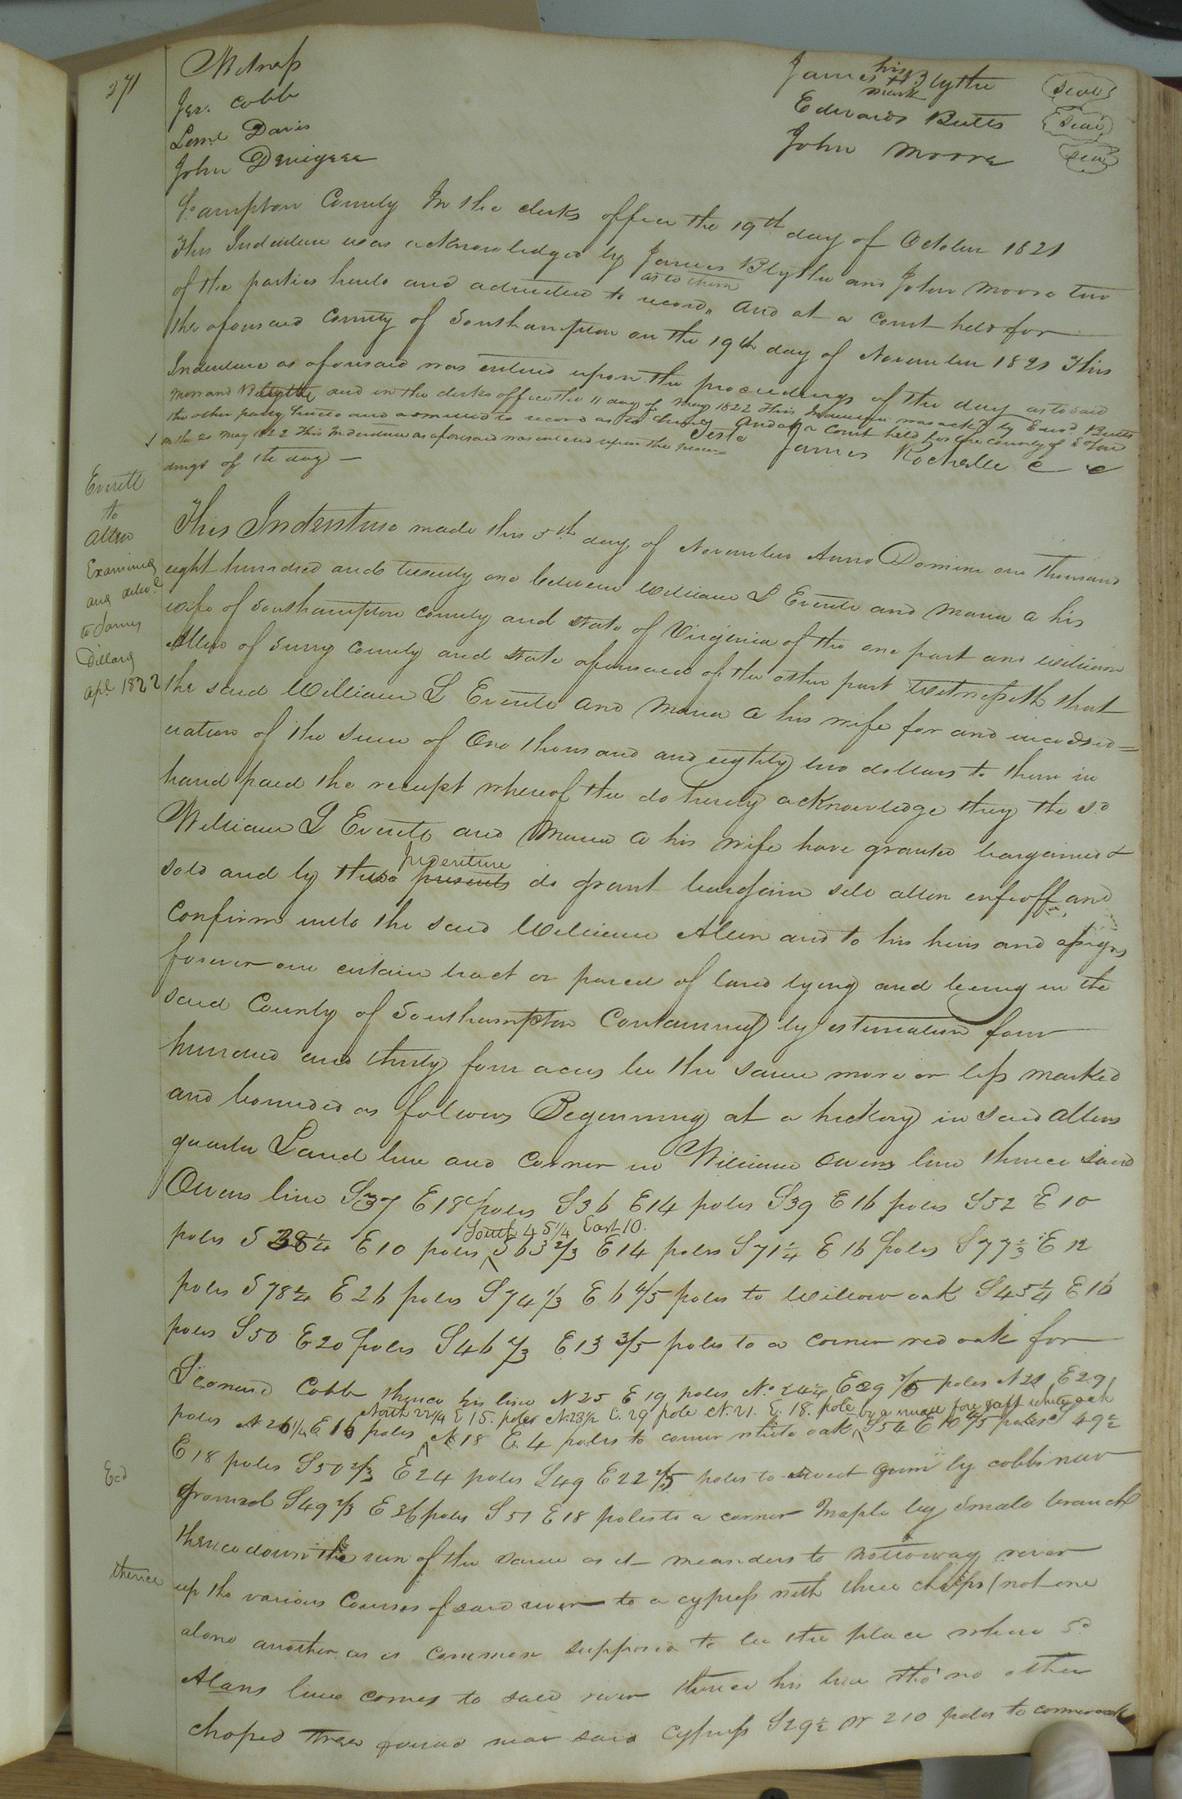 271
Witness
Jas. Cobb
Leml Davis
John Denigree
James his + mark Blythe seal
Edwards Butts seal
John Moore seal
S.ampton County In the clerks office the 19th day of October 1821
This Indenture was acknowledged by James Blythe and John Moore two
of the parties hereto and admitted to record as to them, and at a Court held for
the aforesaid County of Southampton on the 19th day of November 1821 This
Indenture as aforesaid was entered upon the proceedings of the day as to said
Moor and Blythe and in the clerks office the 11 day of May 1822 This Indenture was ackd by Edwd Butts
the other party hereto and admitted to record as to him And at a Court held for the County of
on the 20 May 1822 This Indenture as aforesaid was entered upon the procee
dings of the day — Teste James Rochelle C C
Everitt
to
Allen
Examined
and delivd
to James
Dillard
Apl 1822
This Indenture made this 5th day of November Anno Domini one thousand
eight hundred and twenty one between William L Everitt and Maria A his
wife of Southampton County and State of Virginia of the one part and William
Allen of Surry County and State aforesaid of the other part Witnesseth that
the said William L Everitt and Maria A his wife for and in consid=
eration of the sum of One thousand and eighty two dollars to them in
hand paid the receipt whereof the do hereby acknowledge they the sd
William L Everitt and Maria A his wife have granted bargained &
sold and by these presents Indenture do grant bargain sell alien enfeoff and
confirm unto the said William Allen and to his heirs and assigns
forever one certain tract or parcel of land lying and being in the
said County of Southampton Containing by estimation four
hundred and thirty four acres be the same more or less marked
and bounded as follows Beginning at a hickory in said Allens
quarter Land line and corner in William Owens line thence said
Owens line S37 E18 poles S36 E14 poles S39 E16 poles S52 E10
poles S 38¼ E10 poles South 45¼ East 10. S63⅔ E14 poles S71¼ E16 poles S77⅓ E12
poles S78¼ E26 poles S74⅓ E6⅘ poles to Willow oak S45¼ E16
poles S50 E20 poles S46⅔ E13⅗ poles to a corner red oak for
Cobb thence his line N25 E19 poles N. 24¼ E29 poles N21 E29
poles N26¼ E16 poles North 22¼ E 15. poles N.23½ E. 29 pole N. 21. E. 18. pole N18 E 4 poles to corner white oak by a white oak S54 E10⅘ poles S 49½
E18 poles S50⅔ E24 poles S49 E22⅖ poles to sweet gum by cobbs new
ground S49⅔ E36 poles S51 E18 poles to a corner Maple by small branch
thence down the run of the same as it meanders to Nottoway river
thence
up the various Courses of said river to a cypress with three chops (not one
alone another as is common supposed to be the place where sd
Alans line comes to said river thence his line tho' no other
choped trees found near said cypress S29½ W 210 poles to corner oak